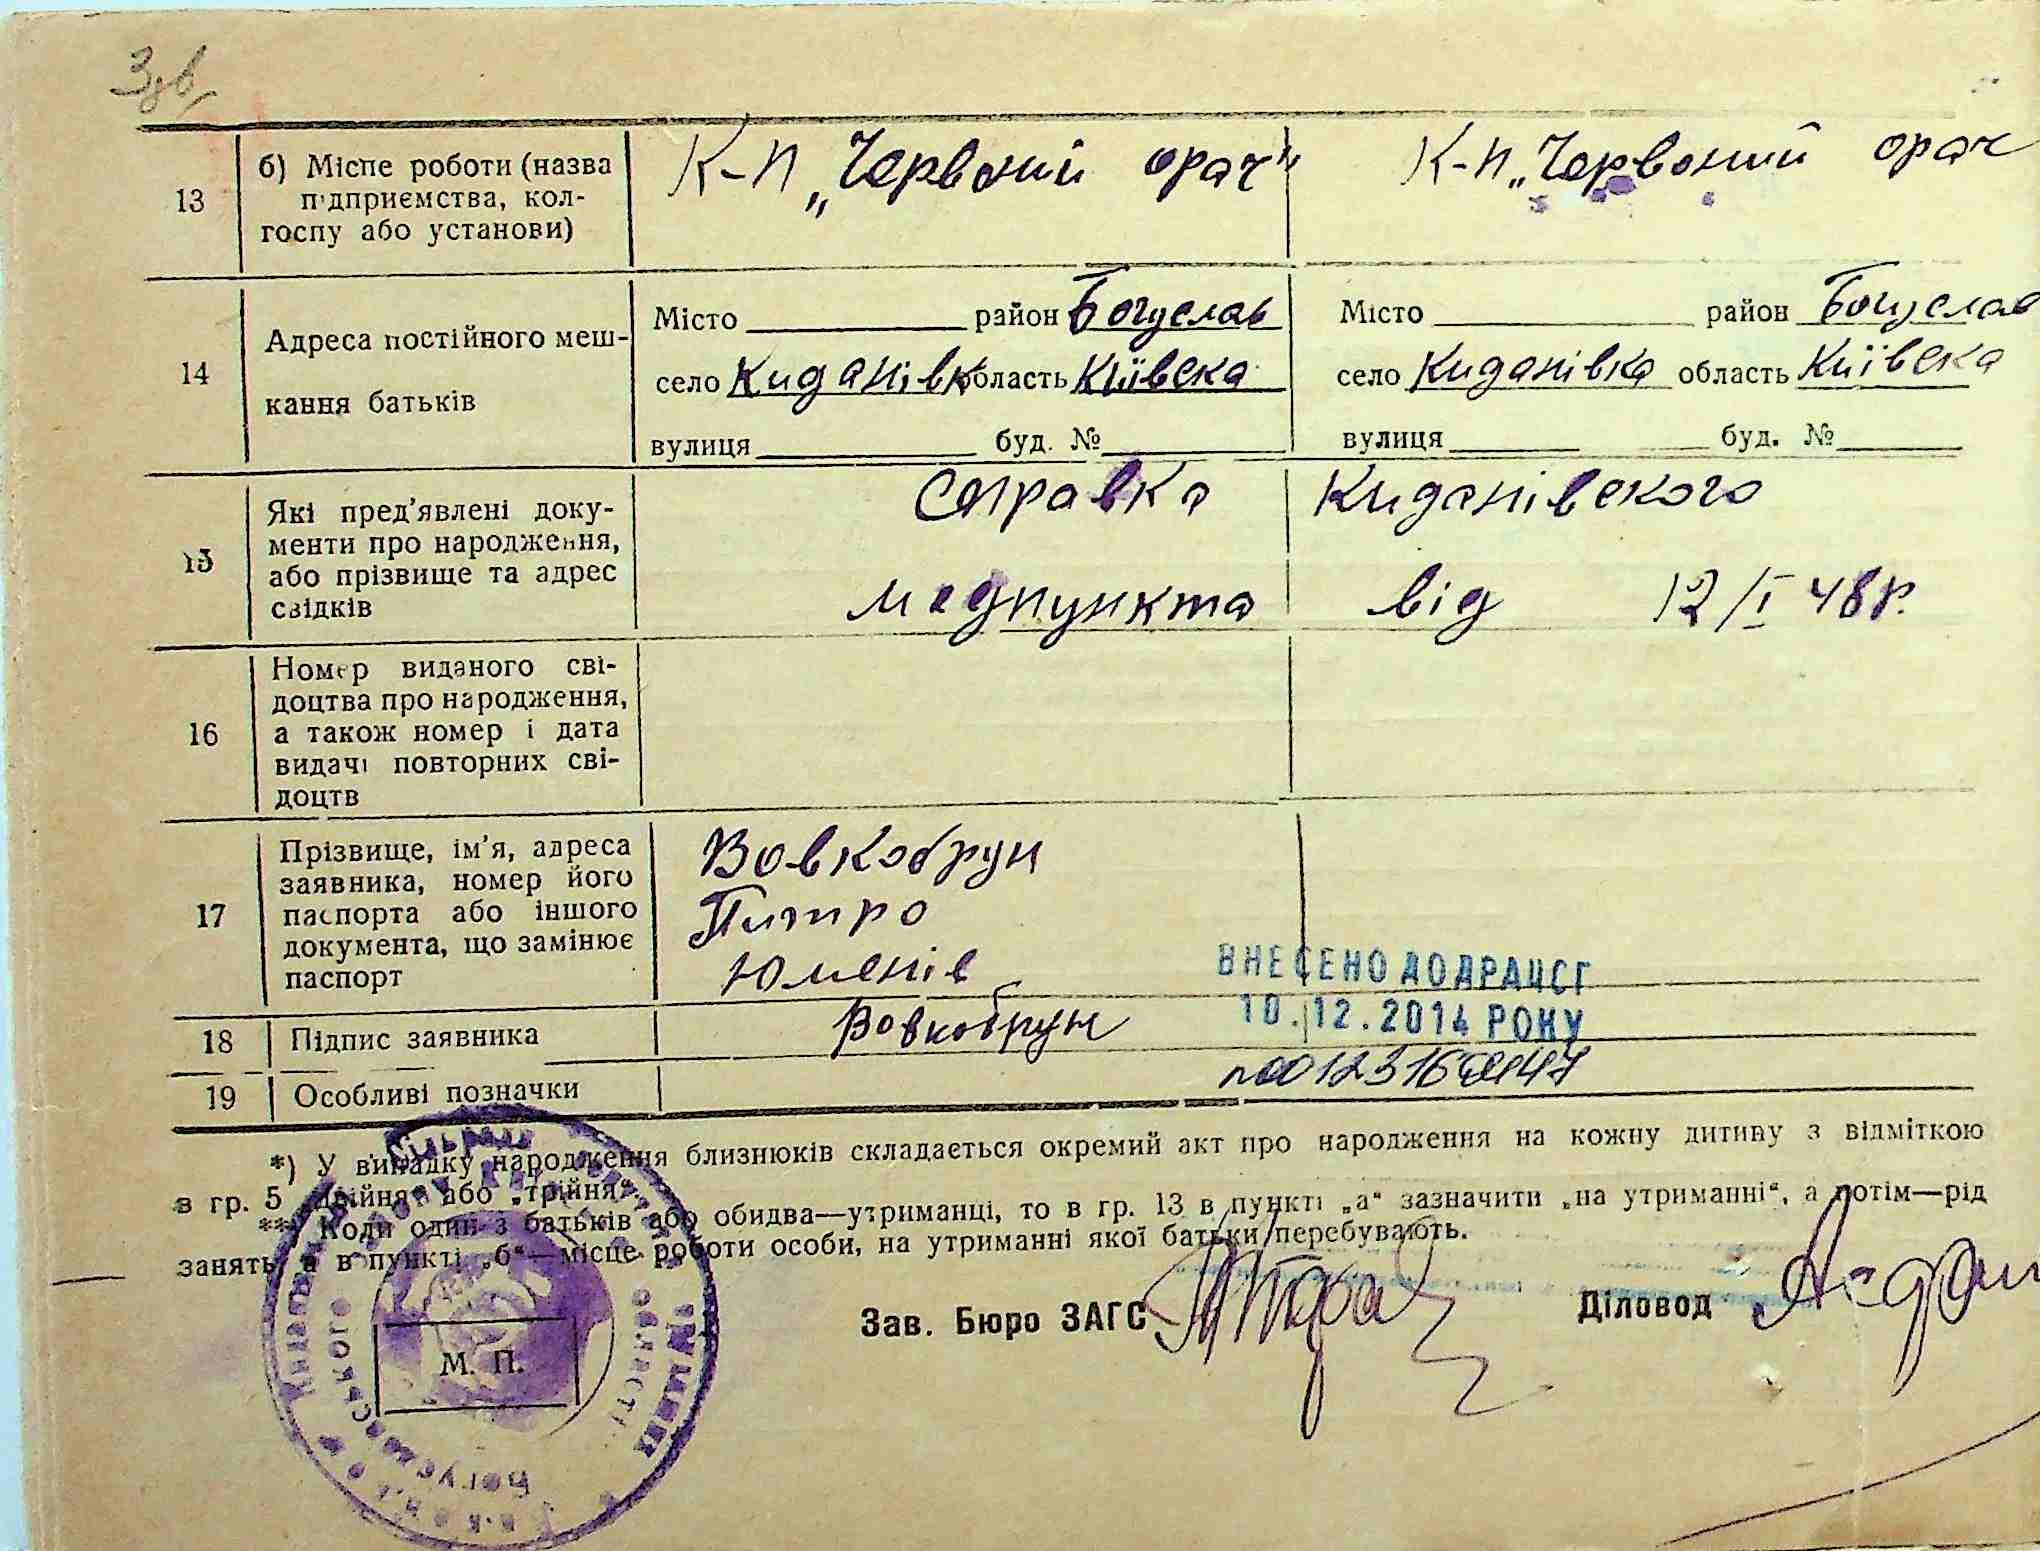 13
б) Місце роботи (назва
підприємства, кол-
госпу або установи)
К-п „Червоний орач"
К-п „Червоний орач
14
Адреса постійного меш-
кання батьків
Місто район Богуслав
село Киданівк область Київська
вулиця буд. №
Місто район Богуслав
село Киданівка область Київська
вулиця буд. №
15
Які пред'явлені доку-
менти про народження,
або прізвище та адрес
свідків
Справка Киданівского
медпункта від 12/I 48г.
16
Номер виданого сві-
доцтва про народження,
а також номер і дата
видачі повторних сві-
доцтв
17
Прізвище, ім'я, адреса
заявника, номер його
паспорта або іншого
документа, що замінює
паспорт
Вовкобрун
Питро
ВНЕСЕНО ДО ДРАЦСГ
10.12.2014 РОКУ
18
Підпис заявника
Вовкобрун
19
Особливі позначки
*) У випадку народження близнюків складається окремий акт про народження на кожну дитину з відміткою
в гр. 5 „двійня" або „трійня".
**) Коли один з батьків або обидва—утриманці, то в гр. 13 в пункті „а" зазначити „на утриманні", а потім—рід
занять, а в пункті „б"—місце роботи особи, на утриманні якої батьки перебувають.
М. П.
Зав. Бюро ЗАГС
Діловод